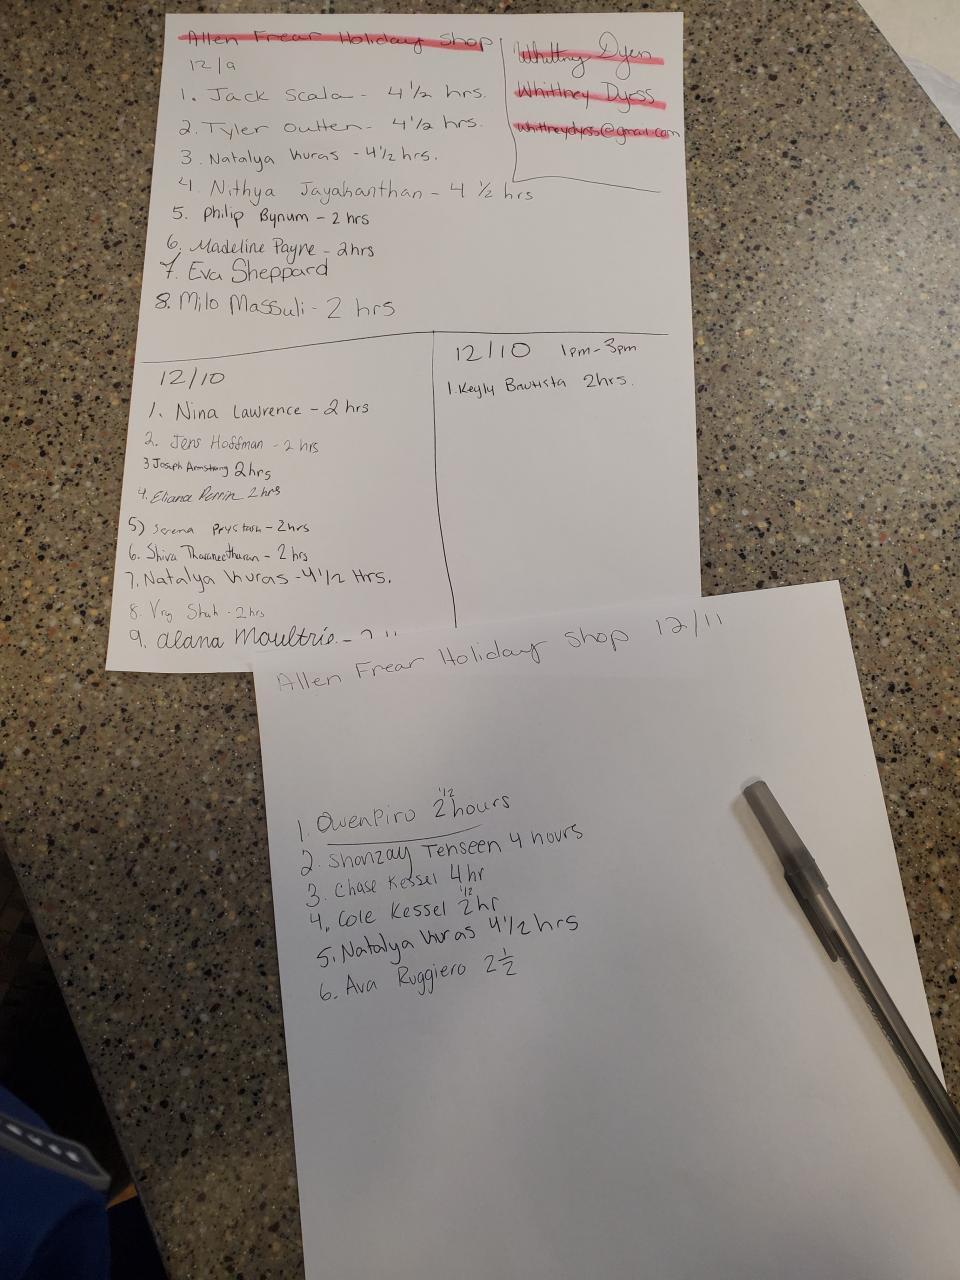 Allen Frear Holiday Shop
12/9
1. Jack Scala - 4 1/2 hrs.
2. Tyler Outten - 4 1/2 hrs.
3. Natalya Kuras - 4 1/2 hrs.
4. Nithya Jayakanthan - 4 1/2 hrs
5. Philip Bynum - 2 hrs
6. Madeline Payne - 2hrs
7. Eva Sheppard
8. Milo Massuli - 2 hrs
Whittney Dyess
Whittney Dyess
whittneydyess@gmail.com
12/10
1. Nina Lawrence - 2 hrs
2. Jens Hoffman - 2 hrs
3 Joseph Armstrong 2hrs
4. Eliana Perrin 2hrs
5) Serena Prystash - 2hrs
6. Shiva - 2 hrs
7. Natalya Kuras - 4 1/2 Hrs.
8. Shah - 2hrs
9. alana Moultrie -
12/10 1pm - 3pm
1. Keyly Bautista 2hrs.
Allen Frear Holiday Shop 12/11
1. Owen Piro 2 1/2 hours
2. Shanzay Tehseen 4 hours
3. Chase Kessel 4 hr
4. Cole Kessel 2 1/2 hr
5. Natalya Kuras 4 1/2 hrs
6. Ava Ruggiero 2 1/2